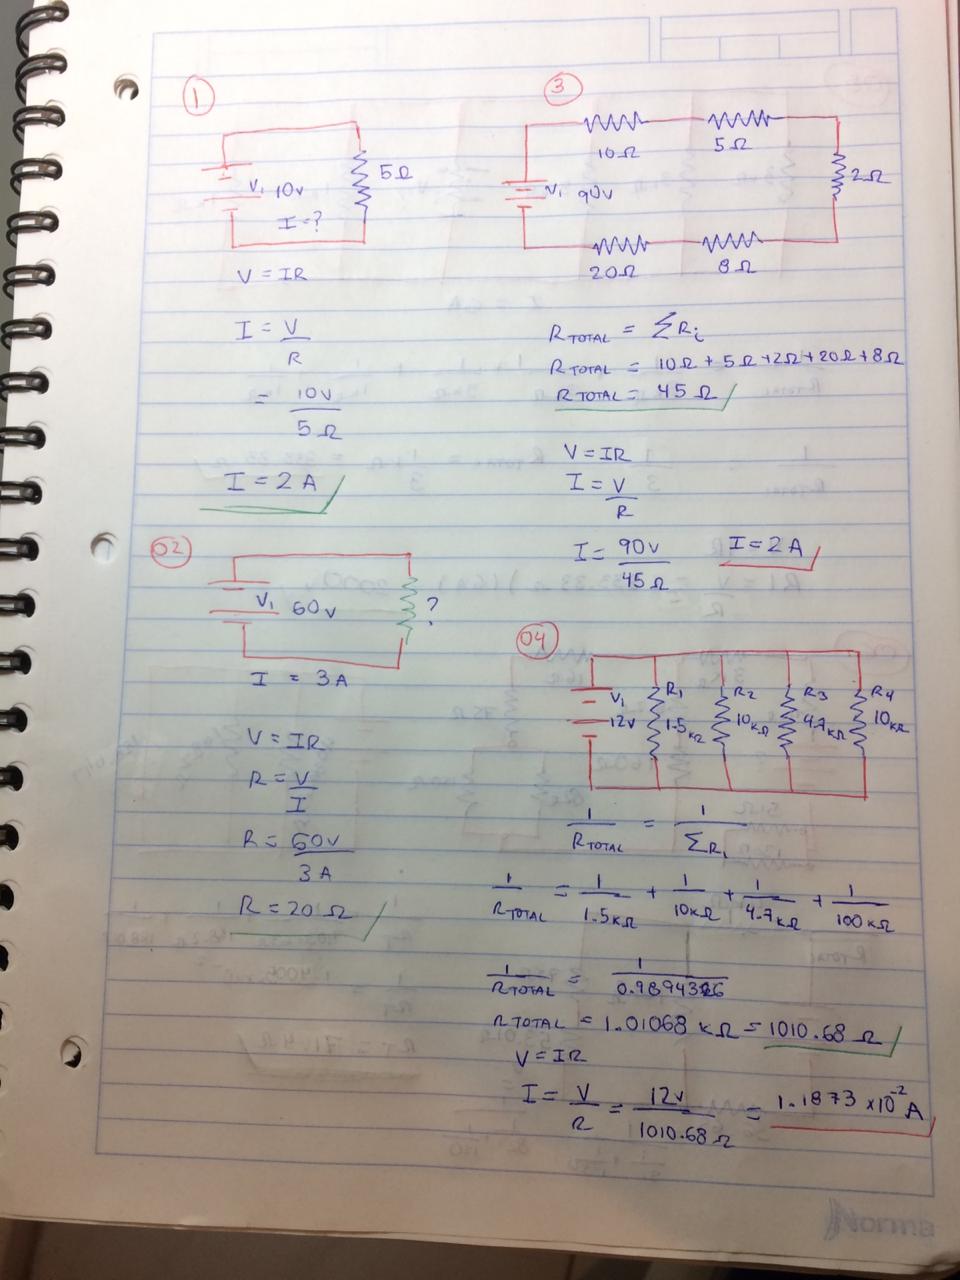 1
V1 10v
I = ?
5Ω
V = IR
I = V
R
= 10v
5Ω
I = 2 A
02
V1 60v
?
I = 3A
V = IR
R = V
I
R = 60v
3A
R = 20Ω
3
10Ω
5Ω
V1 90V
2Ω
20Ω
8Ω
RTOTAL = ΣRi
RTOTAL = 10Ω + 5Ω + 2Ω + 20Ω + 8Ω
RTOTAL = 45Ω
V = IR
I = V
R
I = 90v
45Ω
I = 2A
04
V1
12v
R1
1.5kΩ
R2
10kΩ
R3
4.7kΩ
R4
10kΩ
1/RTOTAL = 1/ΣRi
1/RTOTAL = 1/1.5kΩ + 1/10kΩ + 1/4.7kΩ + 1/100kΩ
1/RTOTAL = 1/0.9894326
RTOTAL = 1.01068 kΩ = 1010.68 Ω
V = IR
I = V/R = 12v/1010.68Ω = 1.1873 x10^-2 A
Norma